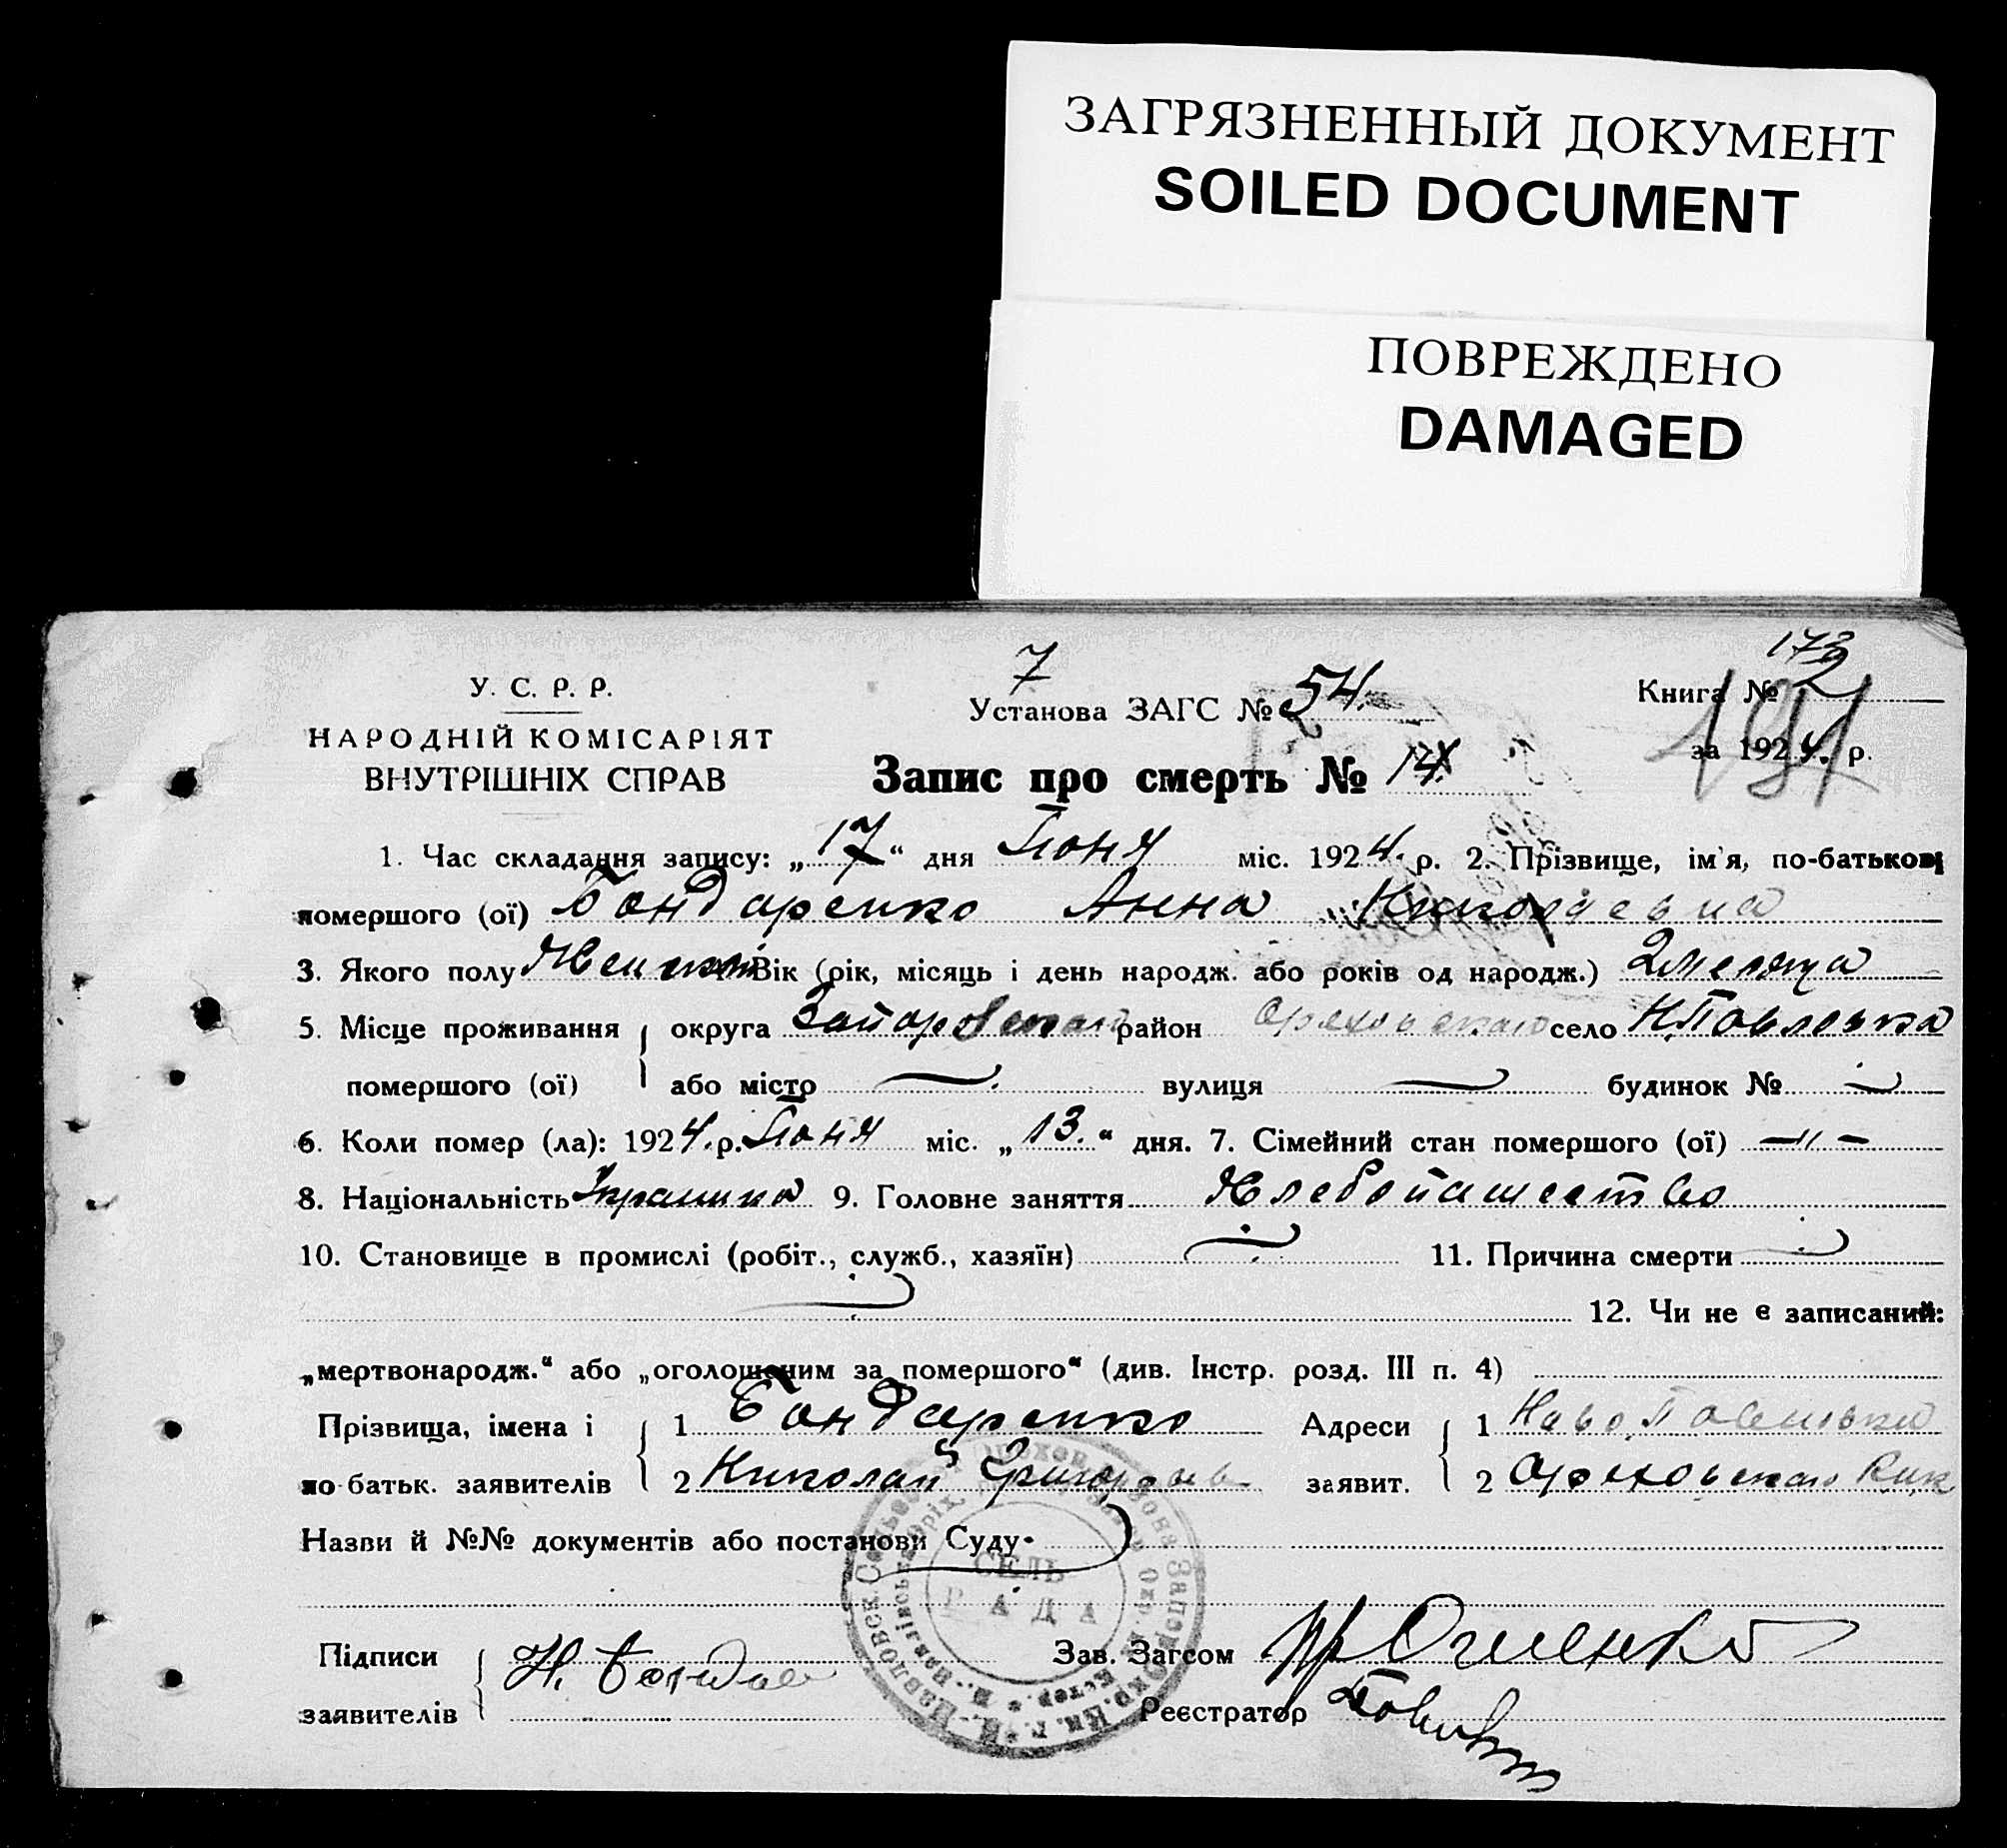 ЗАГРЯЗНЕННЫЙ ДОКУМЕНТ
SOILED DOCUMENT
ПОВРЕЖДЕНО
DAMAGED
173
7
У. С. Р. Р.
Установа ЗАГС № 54.
Книга № 2
НАРОДНІЙ КОМІСАРІЯТ
за 1924. р.
ВНУТРІШНІХ СПРАВ
Запис про смерть № 14
1. Час складання запису: „17“ дня Іюня міс. 1924. р. 2. Прізвище, ім'я, по-батькові
помершого (ої) Бондаренко Анна Николаевна
3. Якого полу Женскаго Вік (рік, місяць і день народж. або років од народж.) 2 месяца
5. Місце проживання округа Запорожскаго район Ореховскаго село Н.Павловка
помершого (ої) або місто вулиця будинок №
6. Коли помер (ла): 1924. р. Іюня міс. „13.“ дня. 7. Сімейний стан помершого (ої) —"—
8. Національність 9. Головне заняття Хлебопашество
10. Становище в промислі (робіт., служб., хазяїн) 11. Причина смерти
12. Чи не є записаний:
„мертвонародж.“ або „оголошеним за помершого“ (див. Інстр. розд. III п. 4)
Прізвища, імена і 1 Бондаренко Адреси 1 Ново Павловка
по-батьк. заявителів 2 Николай Григорьев заявит. 2 Ореховскаго
Назви й №№ документів або постанови Суду
СЕЛЬ
РАДА
Підписи Н. Бондар Зав. Загсом
заявителів Реєстратор